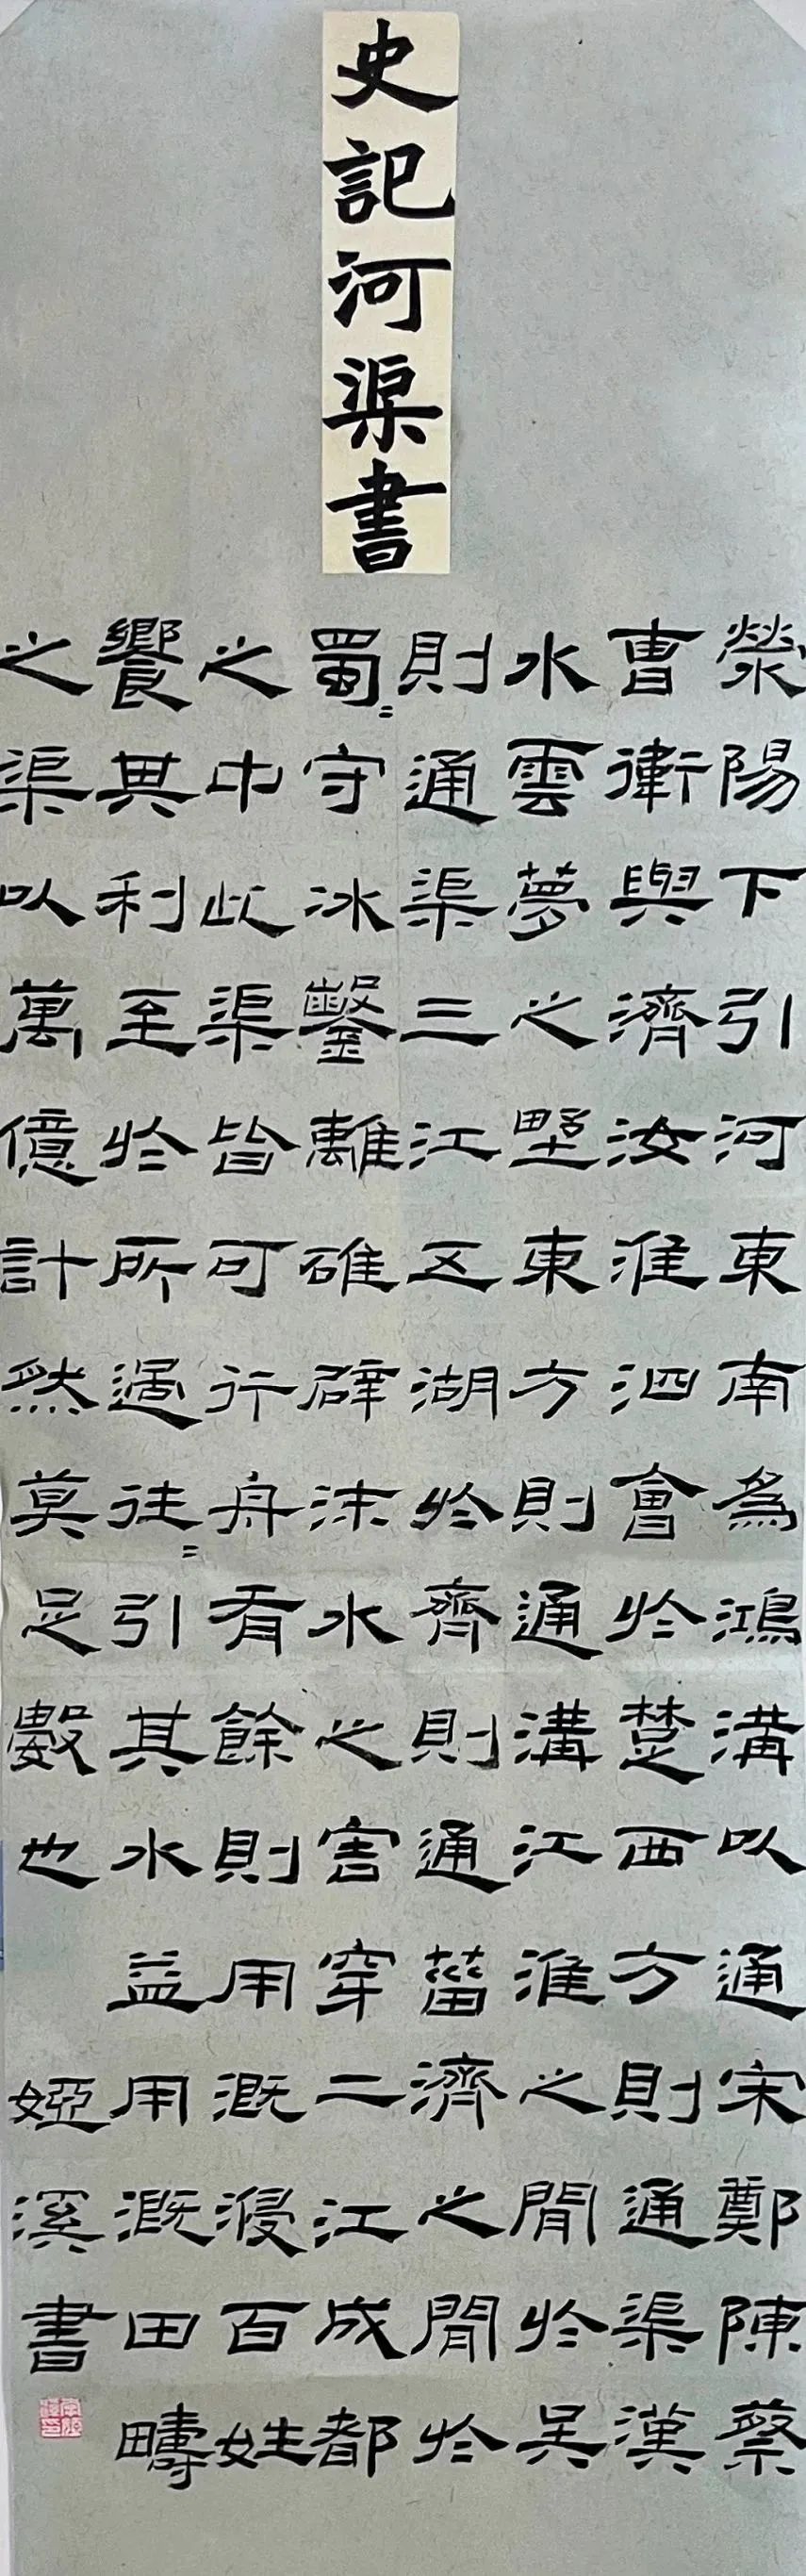 史記河渠書
滎陽下引河東南為鴻溝以通宋鄭陳蔡
曹衛與濟汝淮泗會於楚西方則通渠漢
水雲夢之野東方則通溝江淮之閒於吳
則通渠三江五湖於齊則通菑濟之閒於
蜀〻守冰鑿離碓辟沫水之害穿二江成都
之中此渠皆可行舟有餘則用溉浸百姓
饗其利至於所過往〻引其水益用溉田疇
之渠以萬億計然莫足數也
婭溪書